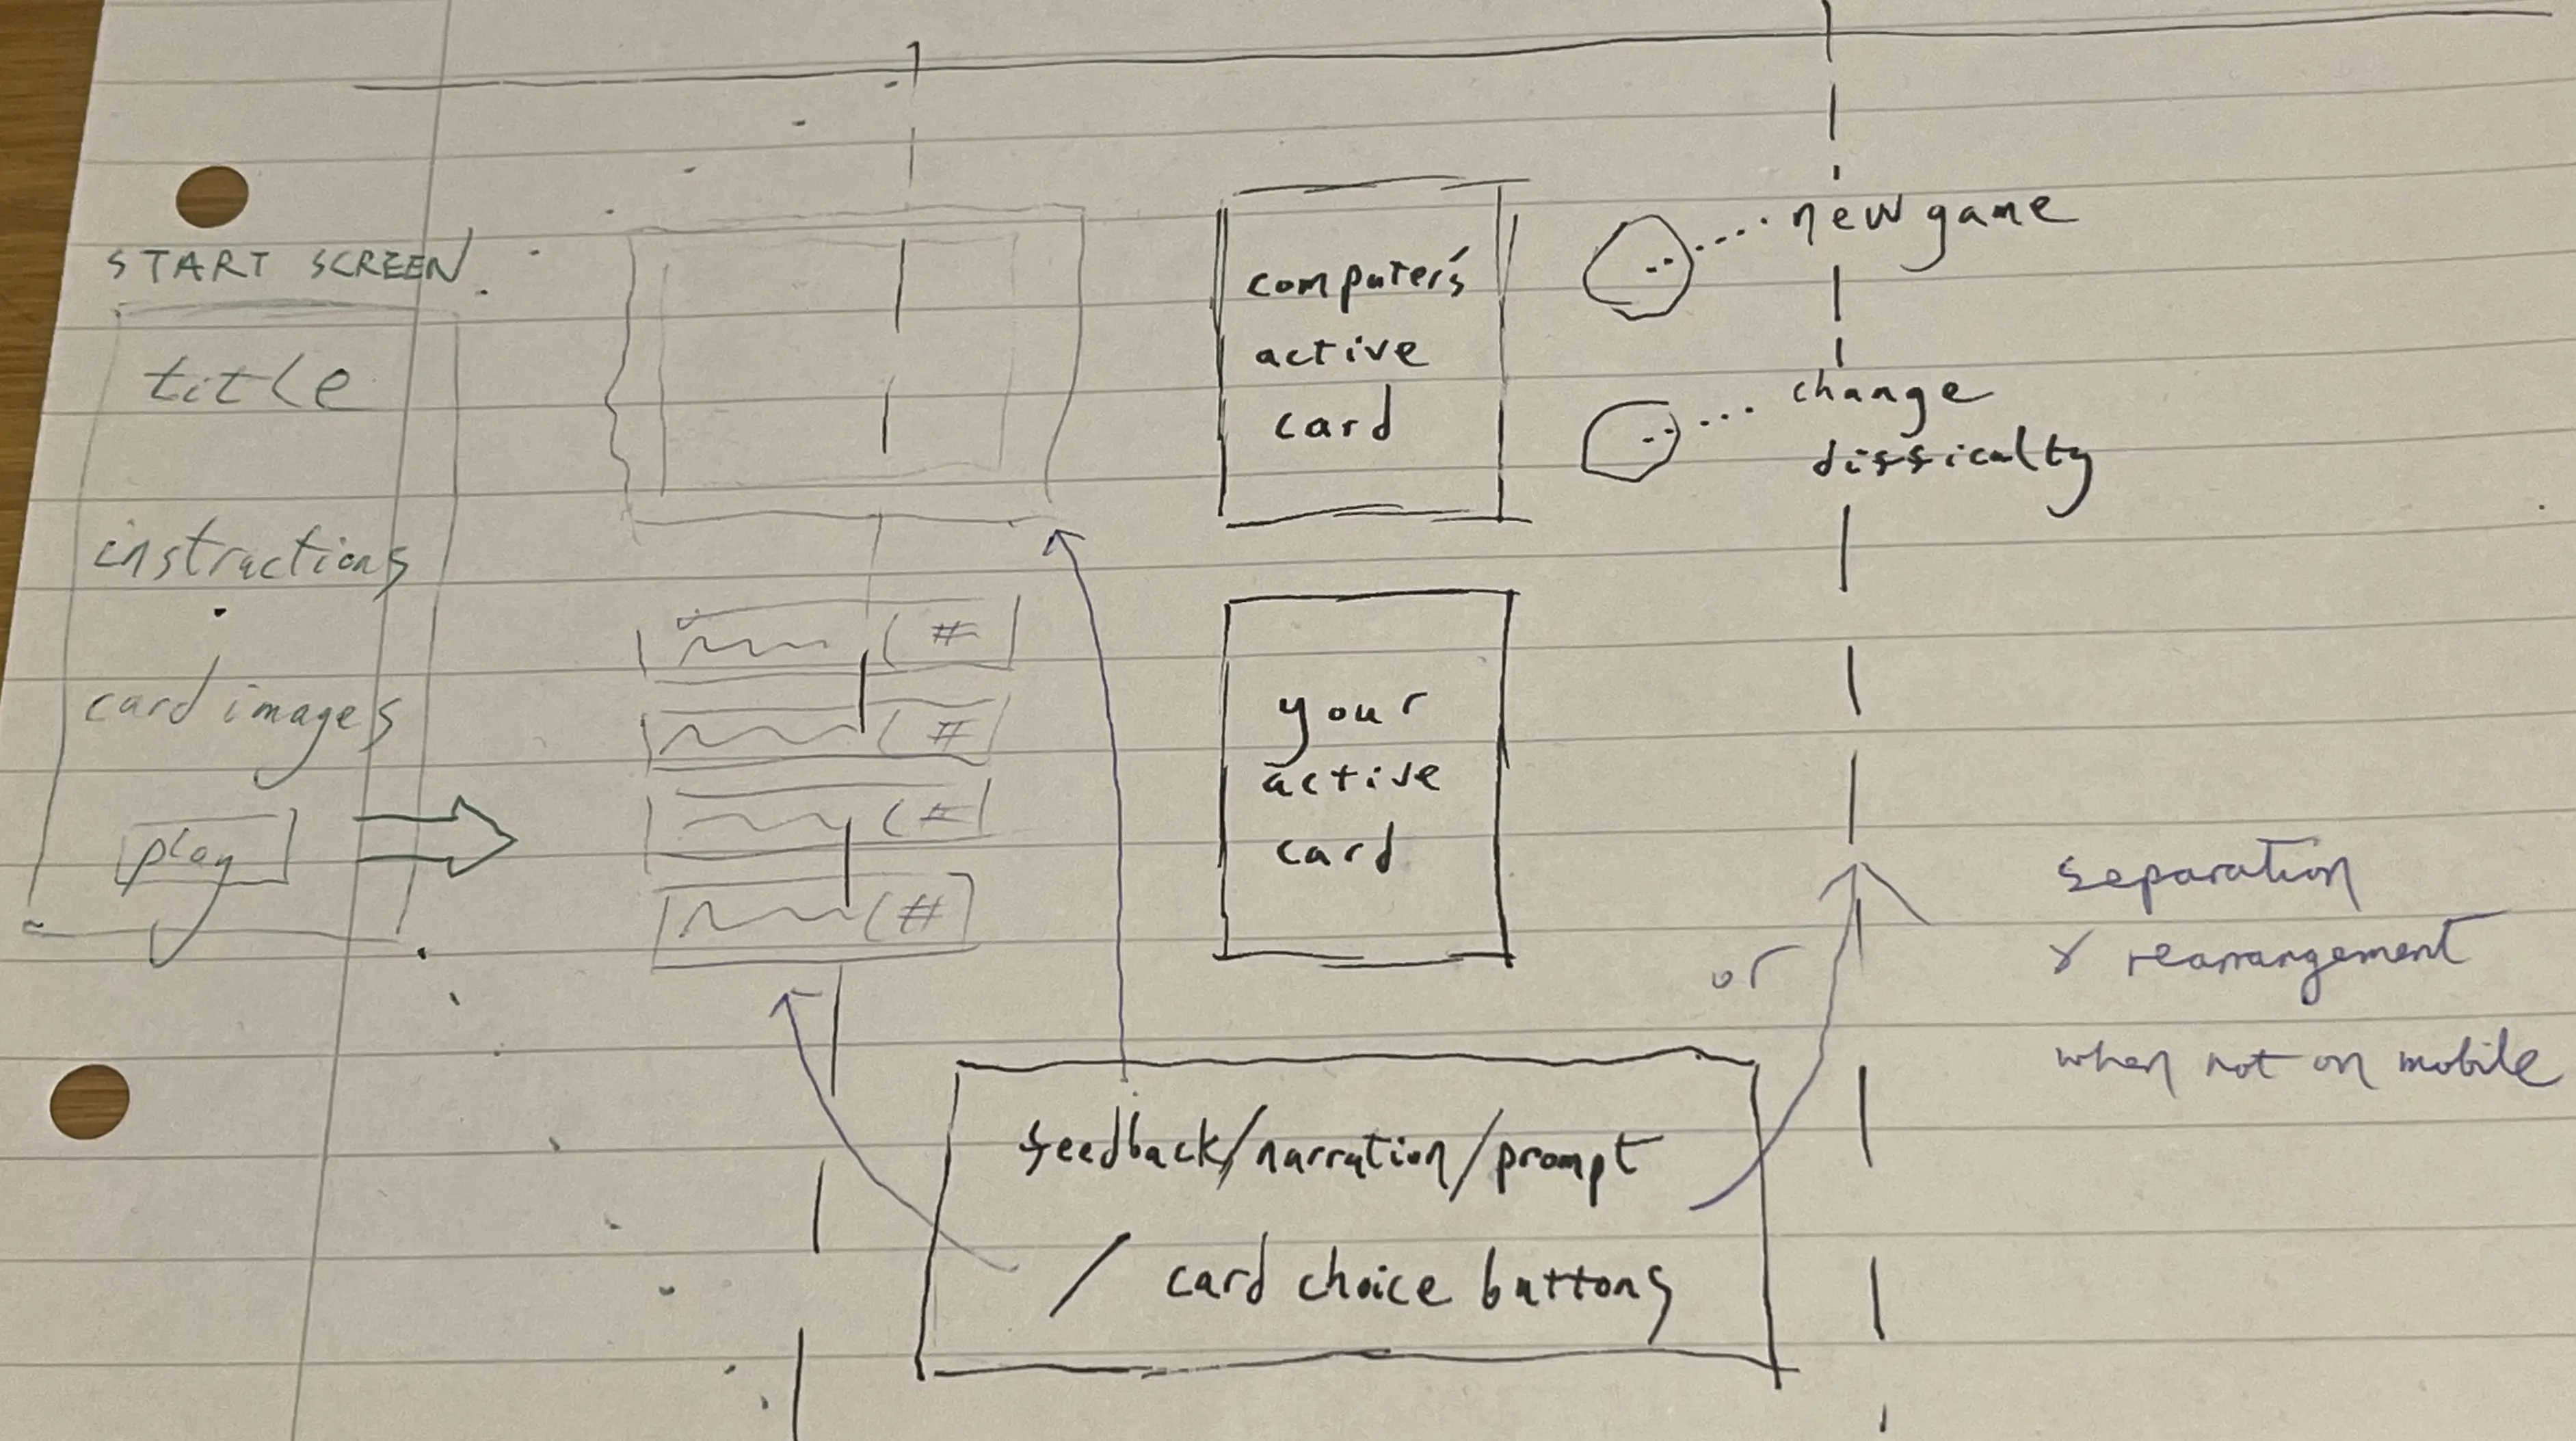 START SCREEN
title
instructions
card images
play
(#
(#
(#
(#
computer's
active
card
new game
change
difficulty
your
active
card
or
separation
& rearrangement
when not on mobile
feedback/narration/prompt
/ card choice buttons